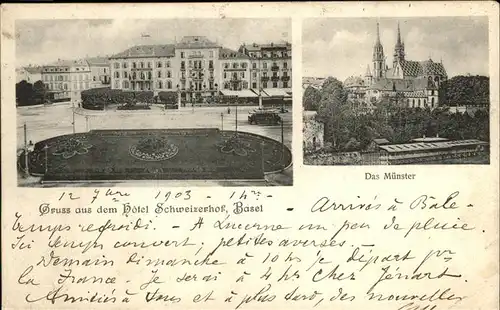 Das Münster
12 7bre 1903 - 14h-
Gruss aus dem Hôtel Schweizerhof, Basel
Arrivés à Bâle -
Temps refroidi. - A Lucerne un peu de pluie.
Ici temps couvert, petites averses. -
Demain dimanche à 10 hs le départ pr
la France. - Je serai à 4 hs chez
Amitiés à tous et à plus tard, des nouvelles